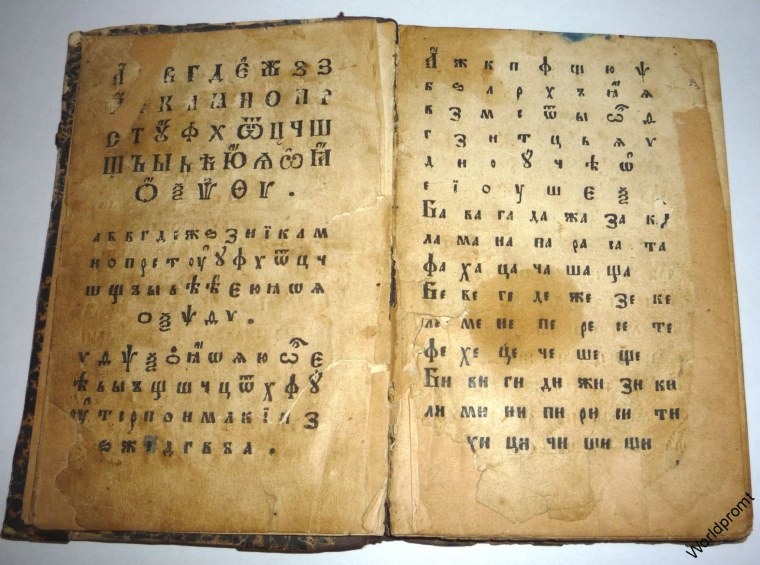 А҆ В Г Д Е҆ Ж Ѕ З
К Л М Н О П Р
С Т Ꙋ Ф Х Ѿ Ц Ч Ш
Щ Ъ Ы Ь Ѣ Ю҆ Ѧ Ѡ҆ Ꙗ҆
Ѻ҆ Ѯ Ѱ Ѳ Ѵ .
а б в г д е ж ѕ з и ї к л м
н о п р с т ѹ҆ ꙋ ф х ѿ ц ч
ш щ ъ ы ь ѣ ѣ є ю ꙗ ѡ ѧ
ѻ ѯ ѱ ѳ ѵ .
ѵ ѳ ѱ ѯ ѻ҆ ꙗ҆ ѡ ѧ ю ѽ є
ѣ ь ы ъ щ ш ч ц ѿ х ф ꙋ
ѹ҆ т с р п о н м л к ї и з
ѕ ж е д г в б а .
А҆ ж к п ф ш ю ѱ
б ѕ л р х ъ ꙗ҆ ѧ
в з м с ѿ ы ѽ ѳ
г з н т ц ь ѧ ѵ
д и о ꙋ ч ѣ ѡ҆
е ї о у ш є ѯ
Ба ва га да жа за ка
ла ма на па ра са та
фа ха ца ча ша ща
Бе ве ге де же зе ке
ле ме не пе ре се те
фе хе це че ше ще
Би ви ги ди жи зи ки
ли ми ни пи ри си ти
хи ци чи ши щи
Worldpromt